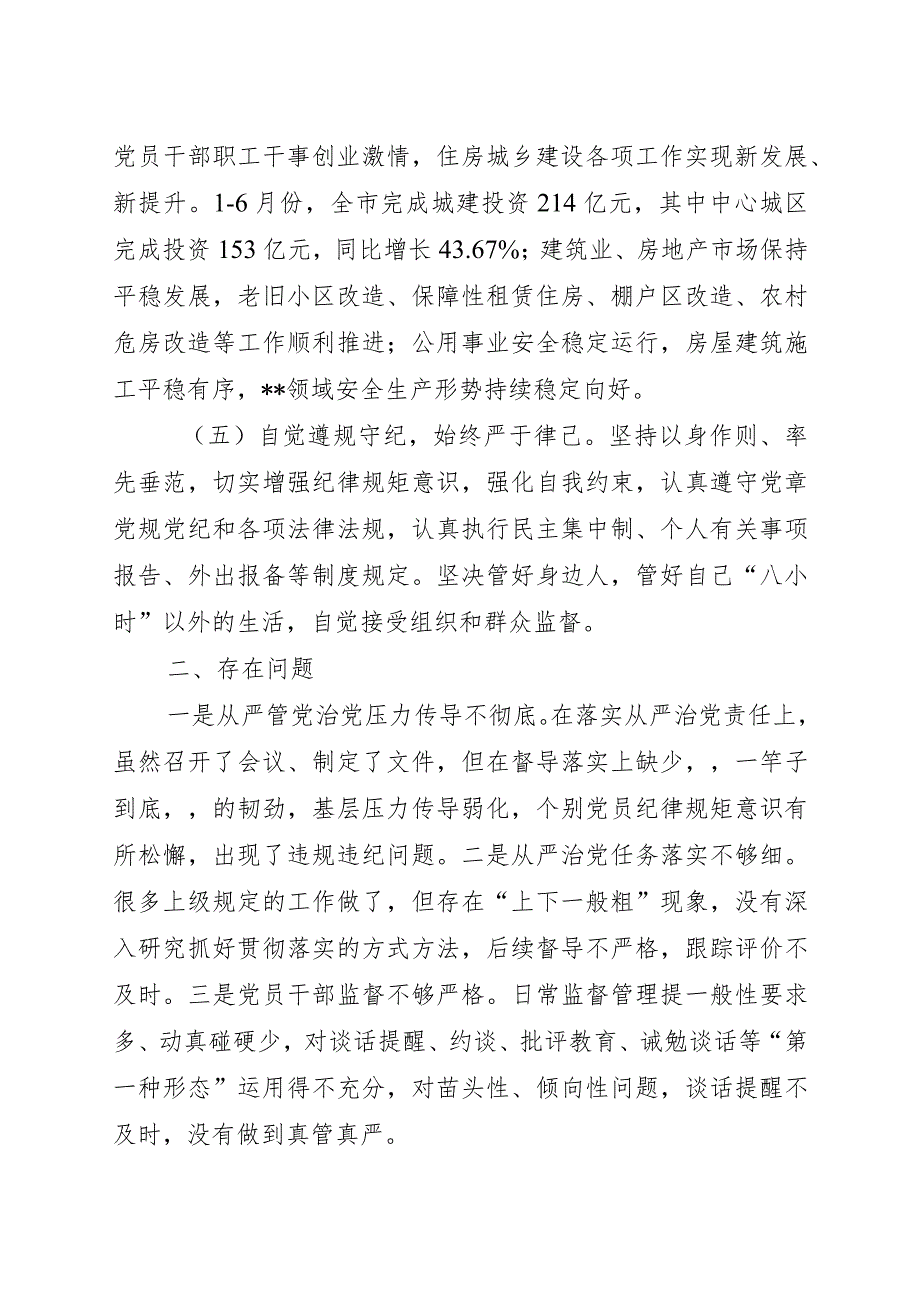 党员干部职工干事创业激情，住房城乡建设各项工作实现新发展、
新提升。1-6 月份，全市完成城建投资 214 亿元，其中中心城区
完成投资 153 亿元，同比增长 43.67%；建筑业、房地产市场保持
平稳发展，老旧小区改造、保障性租赁住房、棚户区改造、农村
危房改造等工作顺利推进；公用事业安全稳定运行，房屋建筑施
工平稳有序，**领域安全生产形势持续稳定向好。
（五）自觉遵规守纪，始终严于律己。坚持以身作则、率
先垂范，切实增强纪律规矩意识，强化自我约束，认真遵守党章
党规党纪和各项法律法规，认真执行民主集中制、个人有关事项
报告、外出报备等制度规定。坚决管好身边人，管好自己“八小
时”以外的生活，自觉接受组织和群众监督。
二、存在问题
一是从严管党治党压力传导不彻底。在落实从严治党责任上，
虽然召开了会议、制定了文件，但在督导落实上缺少，，一竿子
到底，，的韧劲，基层压力传导弱化，个别党员纪律规矩意识有
所松懈，出现了违规违纪问题。二是从严治党任务落实不够细。
很多上级规定的工作做了，但存在“上下一般粗”现象，没有深
入研究抓好贯彻落实的方式方法，后续督导不严格，跟踪评价不
及时。三是党员干部监督不够严格。日常监督管理提一般性要求
多、动真碰硬少，对谈话提醒、约谈、批评教育、诫勉谈话等“第
一种形态”运用得不充分，对苗头性、倾向性问题，谈话提醒不
及时，没有做到真管真严。